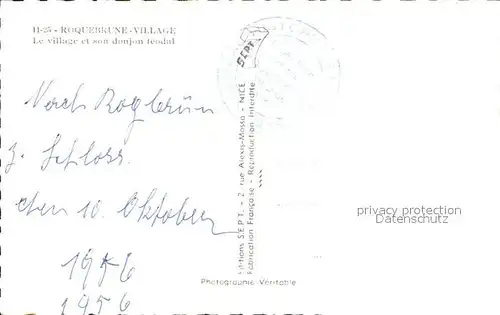 11-25 - ROQUEBRUNE-VILLAGE
Le village et son donjon féodal
SEPT
Nach Rogbrün
z. Schloss
den 10. Oktober
1956
1956
Editions S.E.P.T. - 2, rue Alexis-Mossa - NICE
Fabrication Française - Reproduction Interdite
privacy protection
Datenschutz
Photographie Véritable